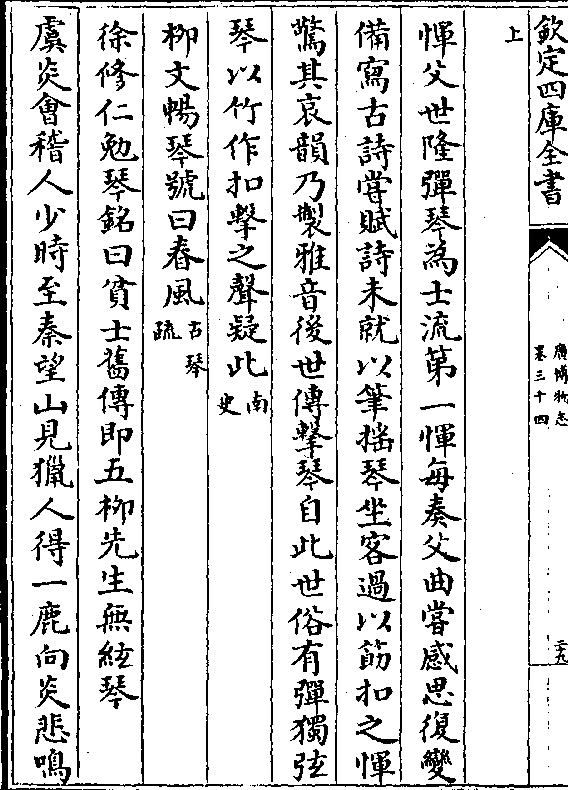 欽定四庫全書
廣博物志
卷三十四
二九
上
惲父世隆彈琴為士流第一惲每奏父曲嘗感思復變
備寫古詩嘗賦詩未就以筆捶琴坐客過以筯扣之惲
驚其哀韻乃製雅音後世傳擊琴自此世俗有彈獨弦
琴以竹作扣擊之聲疑此南史
柳文暢琴號曰春風古琴疏
徐修仁勉琴銘曰貧士舊傳即五柳先生無絃琴
虞炎會稽人少時至秦望山見獵人得一鹿向炎悲鳴